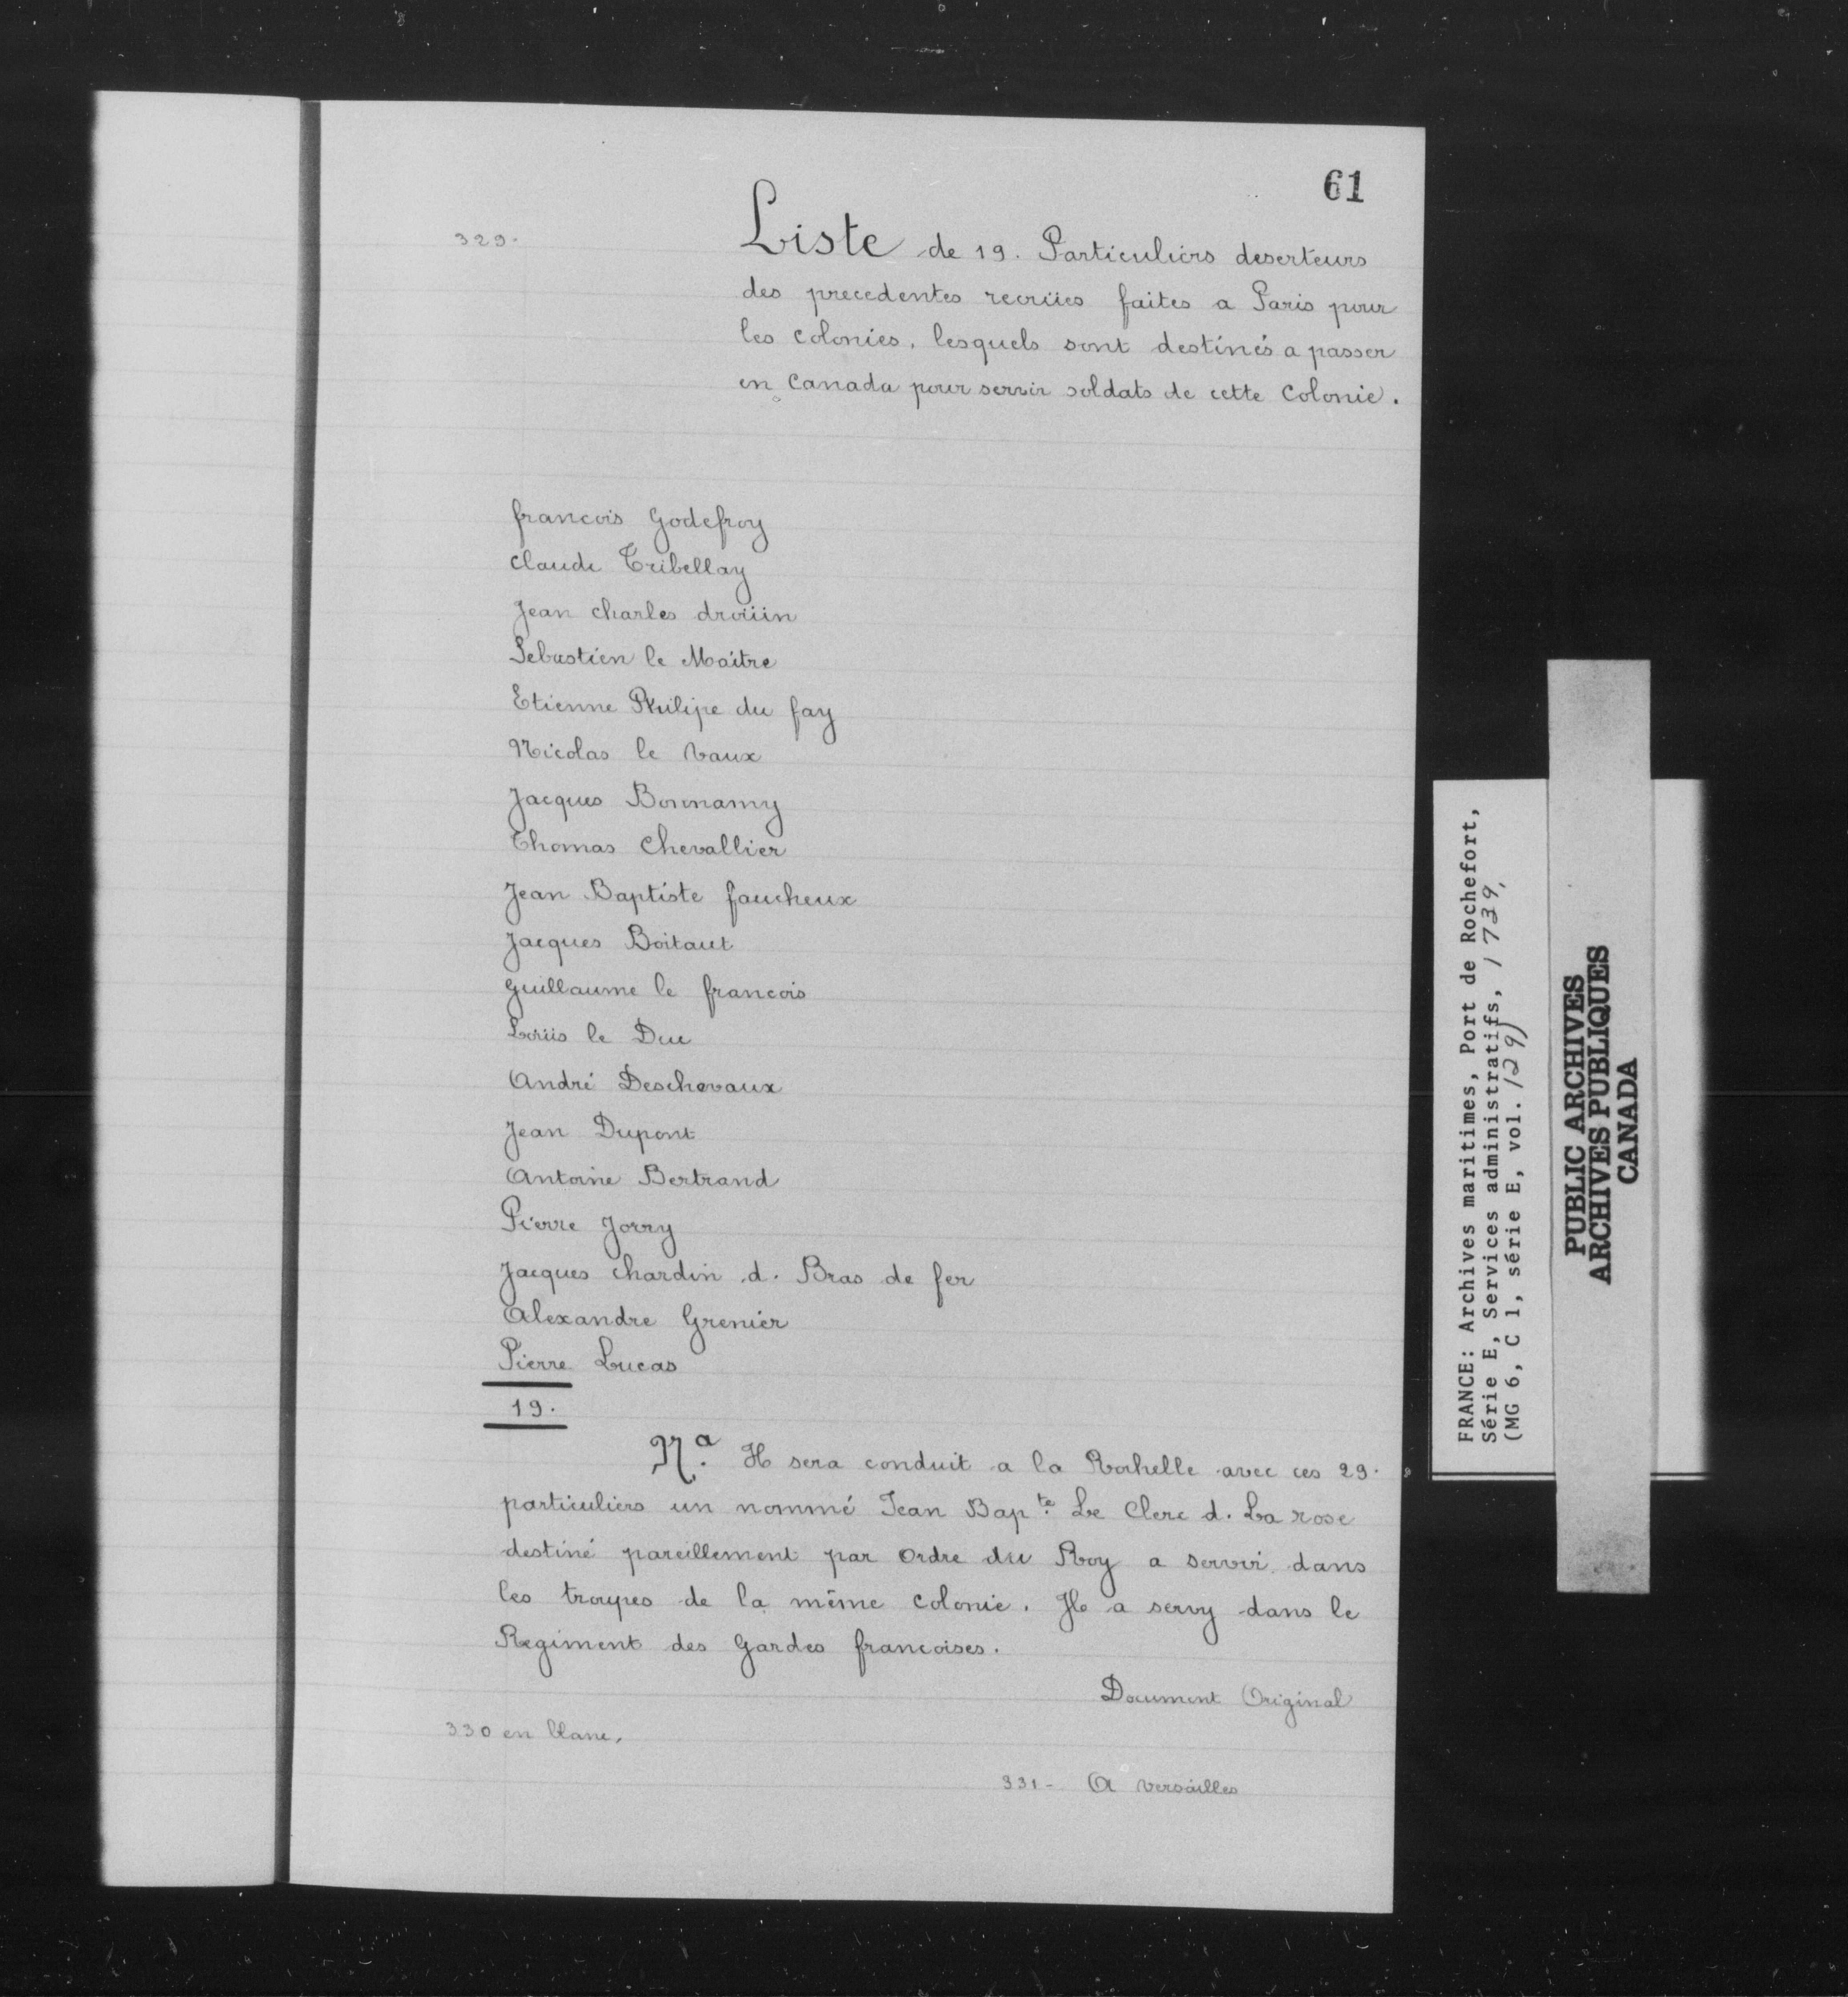 61
329.
Liste de 19. Particuliers deserteurs
des precedentes recrües faites a Paris pour
les Colonies, lesquels sont destinés a passer
en Canada pour servir soldats de cette Colonie.
francois Godefroy
Claude Tribellay
Jean charles droüin
Sebastien le Maitre
Etienne Philipe du fay
Nicolas le Vaux
Jacques Bonnamy
Thomas Chevallier
Jean Baptiste faucheux
Jacques Boitaut
Guillaume le francois
Loüis le Duc
André Deschevaux
Jean Dupont
Antoine Bertrand
Pierre Jorry
Jacques chardin d. Bras de fer
Alexandre Grenier
Pierre Lucas
19.
Na. Il sera conduit a la Rochelle avec ces 29.
particuliers un nommé Jean Bapte. Le Clerc d. La rose
destiné pareillement par Ordre du Roy a servir dans
les troupes de la même Colonie. Il a servy dans le
Regiment des Gardes francoises.
Document Original
330 en blanc.
331- A Versailles
FRANCE: Archives maritimes, Port de Rochefort,
Série E, Services administratifs, 1739,
(MG 6, C 1, série E, vol. 129)
PUBLIC ARCHIVES
ARCHIVES PUBLIQUES
CANADA